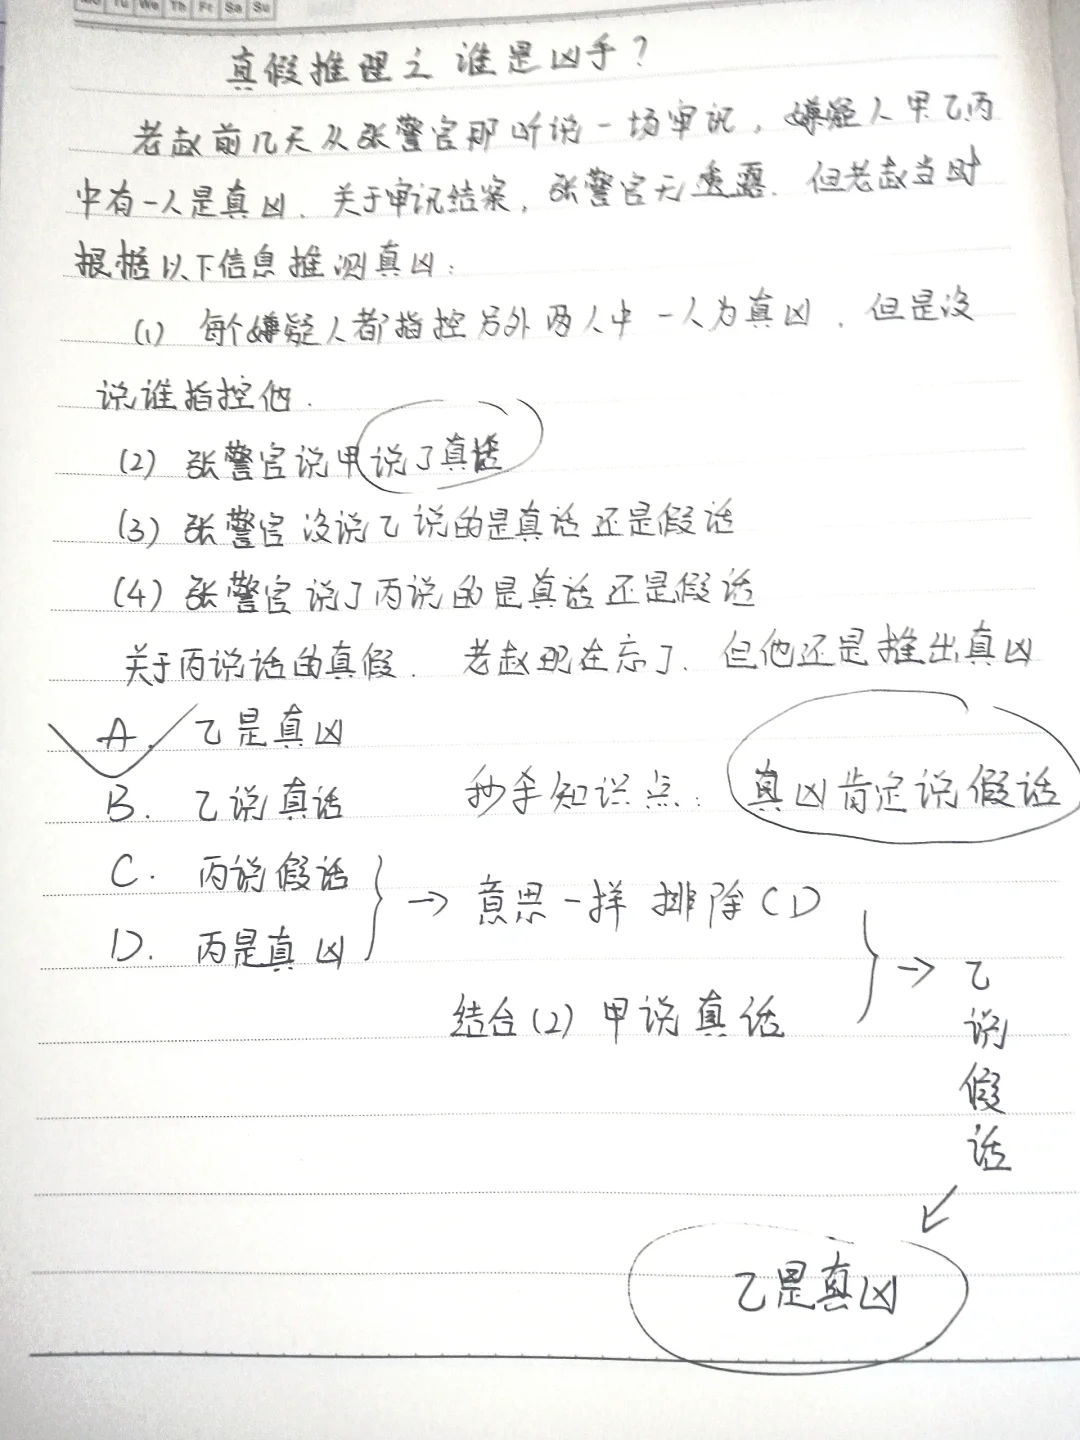 Mo Tu We Th Fr Sa Su
真假推理之 谁是凶手?
老赵前几天从张警官那听说一场审讯, 嫌疑人甲乙丙
中有一人是真凶. 关于审讯结案, 张警官无透露. 但老赵当时
根据以下信息推测真凶:
(1) 每个嫌疑人都指控另外两人中一人为真凶. 但是没
说谁指控他.
(2) 张警官说甲说了真话
(3) 张警官没说乙说的是真话还是假话
(4) 张警官说了丙说的是真话还是假话
关于丙说话的真假. 老赵现在忘了. 但他还是推出真凶
A. 乙是真凶
B. 乙说真话 秒杀知识点: 真凶肯定说假话
C. 丙说假话
D. 丙是真凶
→ 意思一样 排除CD
结合(2) 甲说真话
→ 乙说假话
乙是真凶